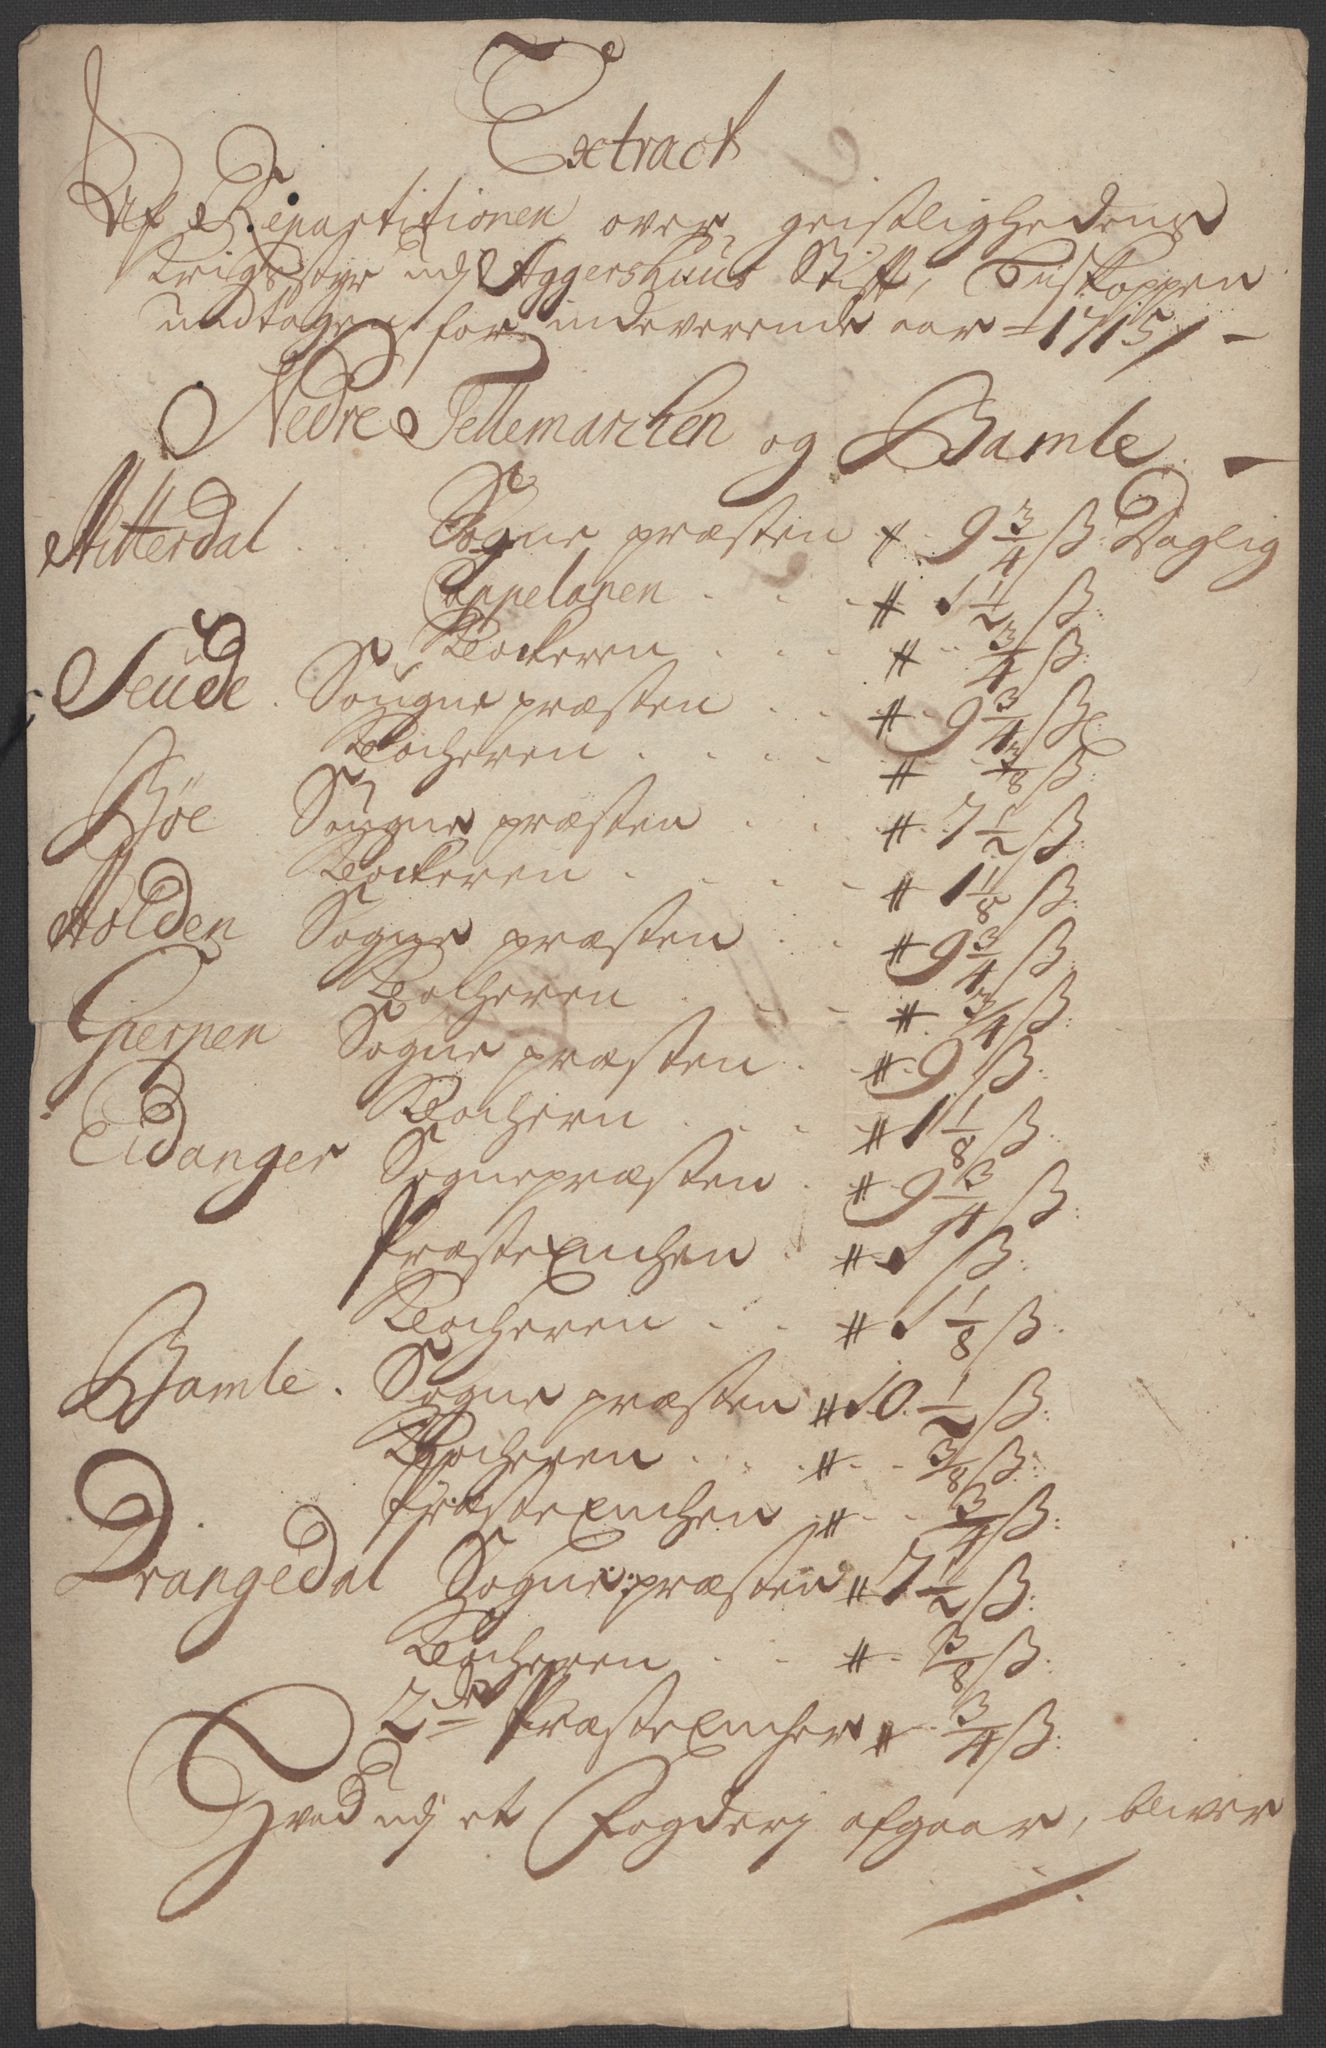 Extract
Af Repartitionen over geistlighedens
Krigsstyr udj Aggershuus Stift, Biskoppen
undtagen for indeverende aar 1715 –
Nedre Tellemarchen og Bamle –
Hitterdal Sogne præsten # 9 3/4 ß Daglig
Cappelanen . . # 1 1/2 ß:
Klockeren . . . # 3/4 ß:
Seude . Sougne præsten . . # 9 3/4 ß:
Klocheren . . . . # 3/8 ß:
Bøe Sougne præsten . . # 7 1/2 ß:
Klockeren . . . . # 1 1/8 ß:
Holden Sogne præsten . . # 9 3/4 ß:
Klocheren . . . # 3/4 ß:
Gierpen Sogne præsten . . # 9 ß:
Klochern . . . # 1 1/8 ß:
Eidanger Sognepræsten . # 9 3/4 ß:
PræsteEnchen . # 1 ß:
Klocheren . . # 1 1/8 ß:
Bamle . Sogne præsten # 10 1/2 ß:
Klocheren . . . # 3/8 ß:
PræsteEnchen # . . 3/4 ß:
Drangedal Sogne præsten # 7 1/2 ß:
Klocheren . . # 3/8 ß:
2de PræsteEncher # 3/4 ß:
Hvad udj et Fogderj afgaar, bliver